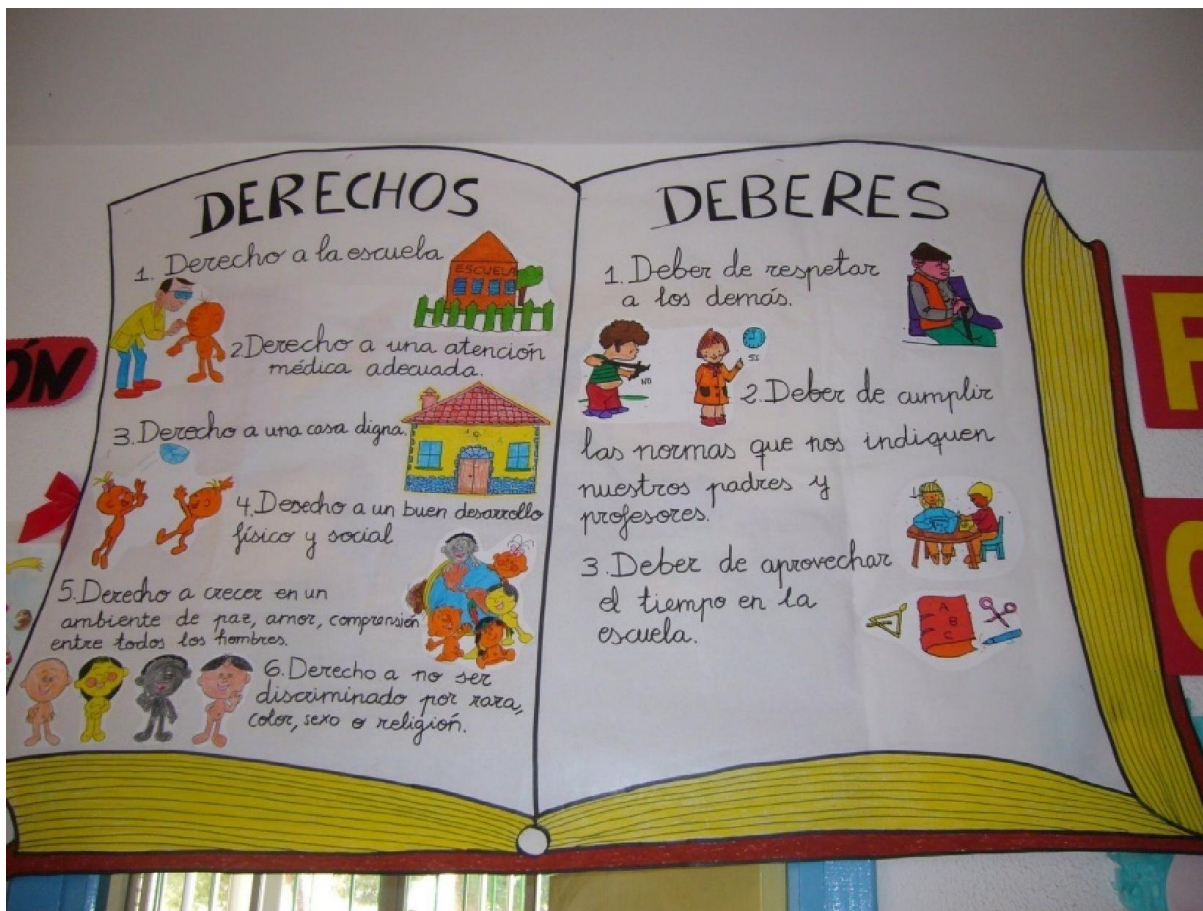 DERECHOS
1. Derecho a la escuela
ESCUELA
2. Derecho a una atención
médica adecuada.
3. Derecho a una casa digna.
4. Derecho a un buen desarrollo
físico y social
5. Derecho a crecer en un
ambiente de paz, amor, comprensión
entre todos los hombres.
6. Derecho a no ser
discriminado por raza,
color, sexo o religión.
DEBERES
1. Deber de respetar
a los demás.
NO
SI
2. Deber de cumplir
las normas que nos indiquen
nuestros padres y
profesores.
3. Deber de aprovechar
el tiempo en la
escuela.
A
B
C
ÓN